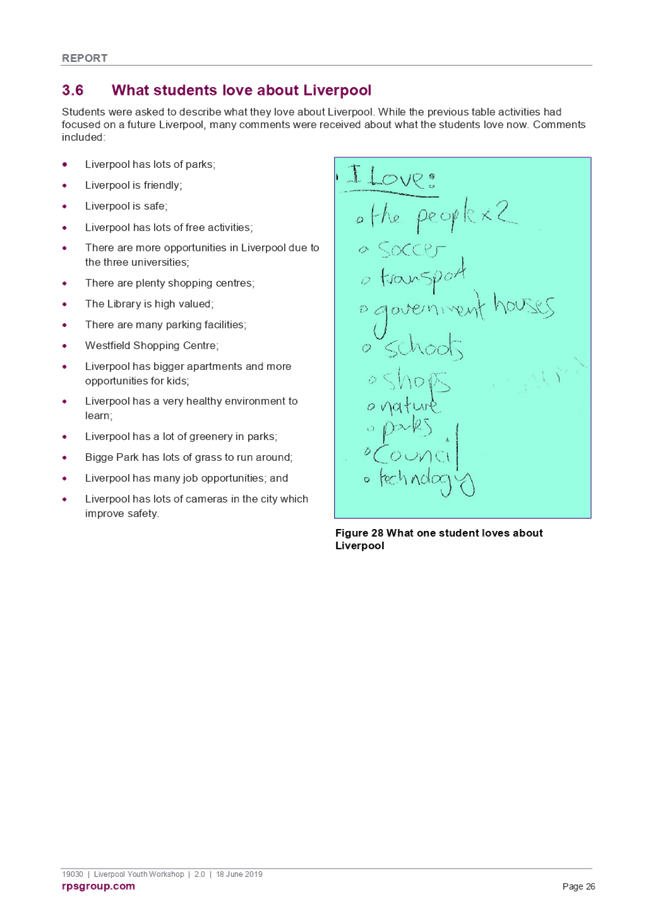 REPORT
3.6 What students love about Liverpool
Students were asked to describe what they love about Liverpool. While the previous table activities had
focused on a future Liverpool, many comments were received about what the students love now. Comments
included:
• Liverpool has lots of parks;
• Liverpool is friendly;
• Liverpool is safe;
• Liverpool has lots of free activities;
• There are more opportunities in Liverpool due to
the three universities;
• There are plenty shopping centres;
• The Library is high valued;
• There are many parking facilities;
• Westfield Shopping Centre;
• Liverpool has bigger apartments and more
opportunities for kids;
• Liverpool has a very healthy environment to
learn;
• Liverpool has a lot of greenery in parks;
• Bigge Park has lots of grass to run around;
• Liverpool has many job opportunities; and
• Liverpool has lots of cameras in the city which
improve safety.
I Love:
o the people x 2
o soccer
o transport
o government houses
o schools
o shops
o nature
o parks
o Council
o technology
Figure 28 What one student loves about
Liverpool
19030 | Liverpool Youth Workshop | 2.0 | 18 June 2019
rpsgroup.com
Page 26